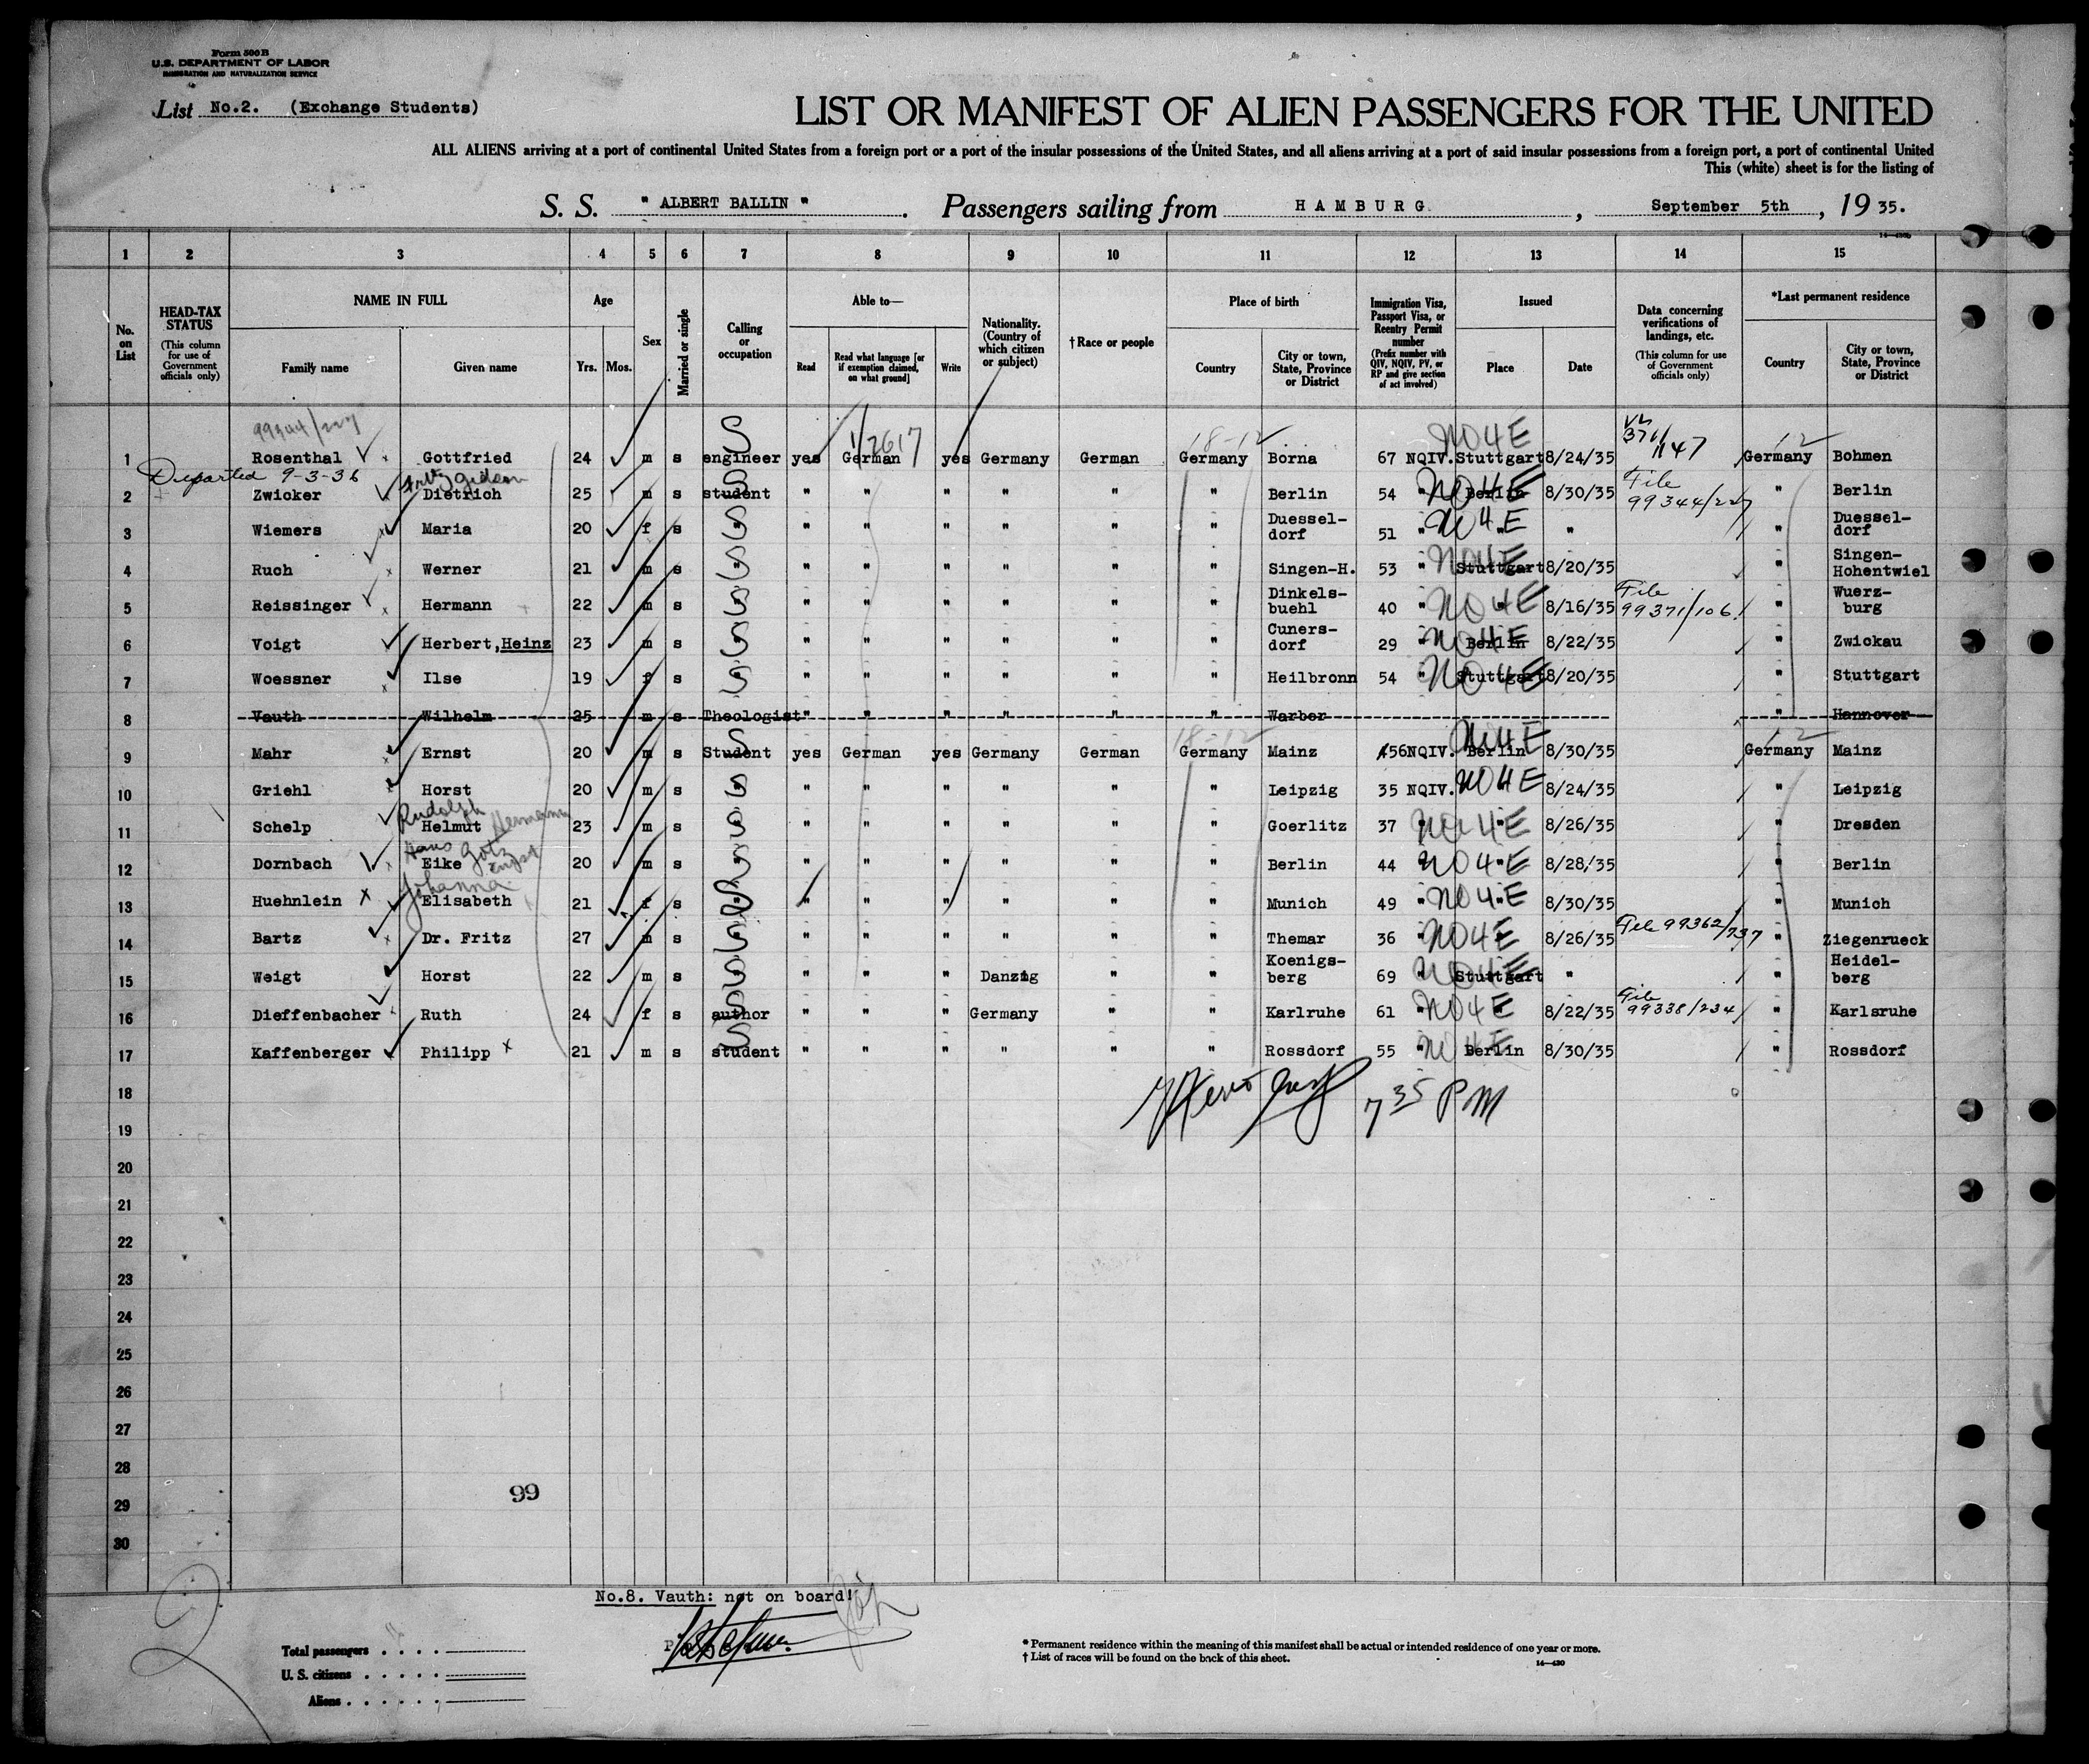 Form 500 B
U.S. DEPARTMENT OF LABOR
IMMIGRATION AND NATURALIZATION SERVICE
List No.2. (Exchange Students)
LIST OR MANIFEST OF ALIEN PASSENGERS FOR THE UNITED
ALL ALIENS arriving at a port of continental United States from a foreign port or a port of the insular possessions of the United States, and all aliens arriving at a port of said insular possessions from a foreign port, a port of continental United
This (white) sheet is for the listing of
S. S. " ALBERT BALLIN ". Passengers sailing from HAMBURG, September 5th, 19 35.
1 2 3 4 5 6 7 8 9 10 11 12 13 14 15
No. on List
HEAD-TAX STATUS (This column for use of Government officials only)
NAME IN FULL Family name Given name
Age Yrs. Mos.
Sex
Married or single
Calling or occupation
Able to— Read Read what language [or if exemption claimed, on what ground] Write
Nationality. (Country of which citizen or subject)
†Race or people
Place of birth Country City or town, State, Province or District
Immigration Visa, Passport Visa, or Reentry Permit number (Prefix number with QIV, NQIV, PV, or RP and give section of act involved)
Issued Place Date
Data concerning verifications of landings, etc. (This column for use of Government officials only)
*Last permanent residence Country City or town, State, Province or District
99344/227
1 Rosenthal Gottfried 24 m s engineer yes German yes Germany German Germany Borna 67 NQIV. Stuttgart 8/24/35 371/147 Germany Bohmen
Departed 9-3-36
2 Zwicker Dietrich 25 m s student " " " " " " Berlin 54 " Berlin 8/30/35 File 99344/227 " Berlin
3 Wiemers Maria 20 f s " " " " " " " Duessel-dorf 51 " NO4E " " Duessel-dorf
4 Ruch Werner 21 m s " " " " " " " Singen-H. 53 " Stuttgart 8/20/35 " Singen-Hohentwiel
5 Reissinger Hermann 22 m s " " " " " " " Dinkels-buehl 40 " NO4E 8/16/35 File 99371/106 " Wuerz-burg
6 Voigt Herbert,Heinz 23 m s " " " " " " " Cuners-dorf 29 " Berlin 8/22/35 " Zwickau
7 Woessner Ilse 19 f s " " " " " " " Heilbronn 54 " Stuttgart 8/20/35 " Stuttgart
8 Vauth Wilhelm 25 m s Theologist " " " " " " Warber " Hannover
9 Mahr Ernst 20 m s Student yes German yes Germany German Germany Mainz 56 NQIV. Berlin 8/30/35 Germany Mainz
10 Griehl Horst 20 m s " " " " " " " Leipzig 35 NQIV. NO4E 8/24/35 " Leipzig
Rudolph Hermann
11 Schelp Helmut 23 m s " " " " " " " Goerlitz 37 " NO4E 8/26/35 " Dresden
Hans Götz Ernst
12 Dornbach Eike 20 m s " " " " " " " Berlin 44 " NO4E 8/28/35 " Berlin
Johanna
13 Huehnlein Elisabeth 21 f s " " " " " " " Munich 49 " NO4E 8/30/35 " Munich
14 Bartz Dr. Fritz 27 m s " " " " " " " Themar 36 " NO4E 8/26/35 File 99362/737 " Ziegenrueck
15 Weigt Horst 22 m s " " " " Danzig " " Koenigs-berg 69 " Stuttgart " " Heidel-berg
16 Dieffenbacher Ruth 24 f s author " " " Germany " " Karlruhe 61 " NO4E 8/22/35 File 99338/234 " Karlsruhe
17 Kaffenberger Philipp 21 m s student " " " " " " Rossdorf 55 " Berlin 8/30/35 " Rossdorf
18 7 35 PM
19
20
21
22
23
24
25
26
27
28
29
30
99
No.8. Vauth: not on board!
Total passengers
U. S. citizens
Aliens
* Permanent residence within the meaning of this manifest shall be actual or intended residence of one year or more.
† List of races will be found on the back of this sheet.
14—430